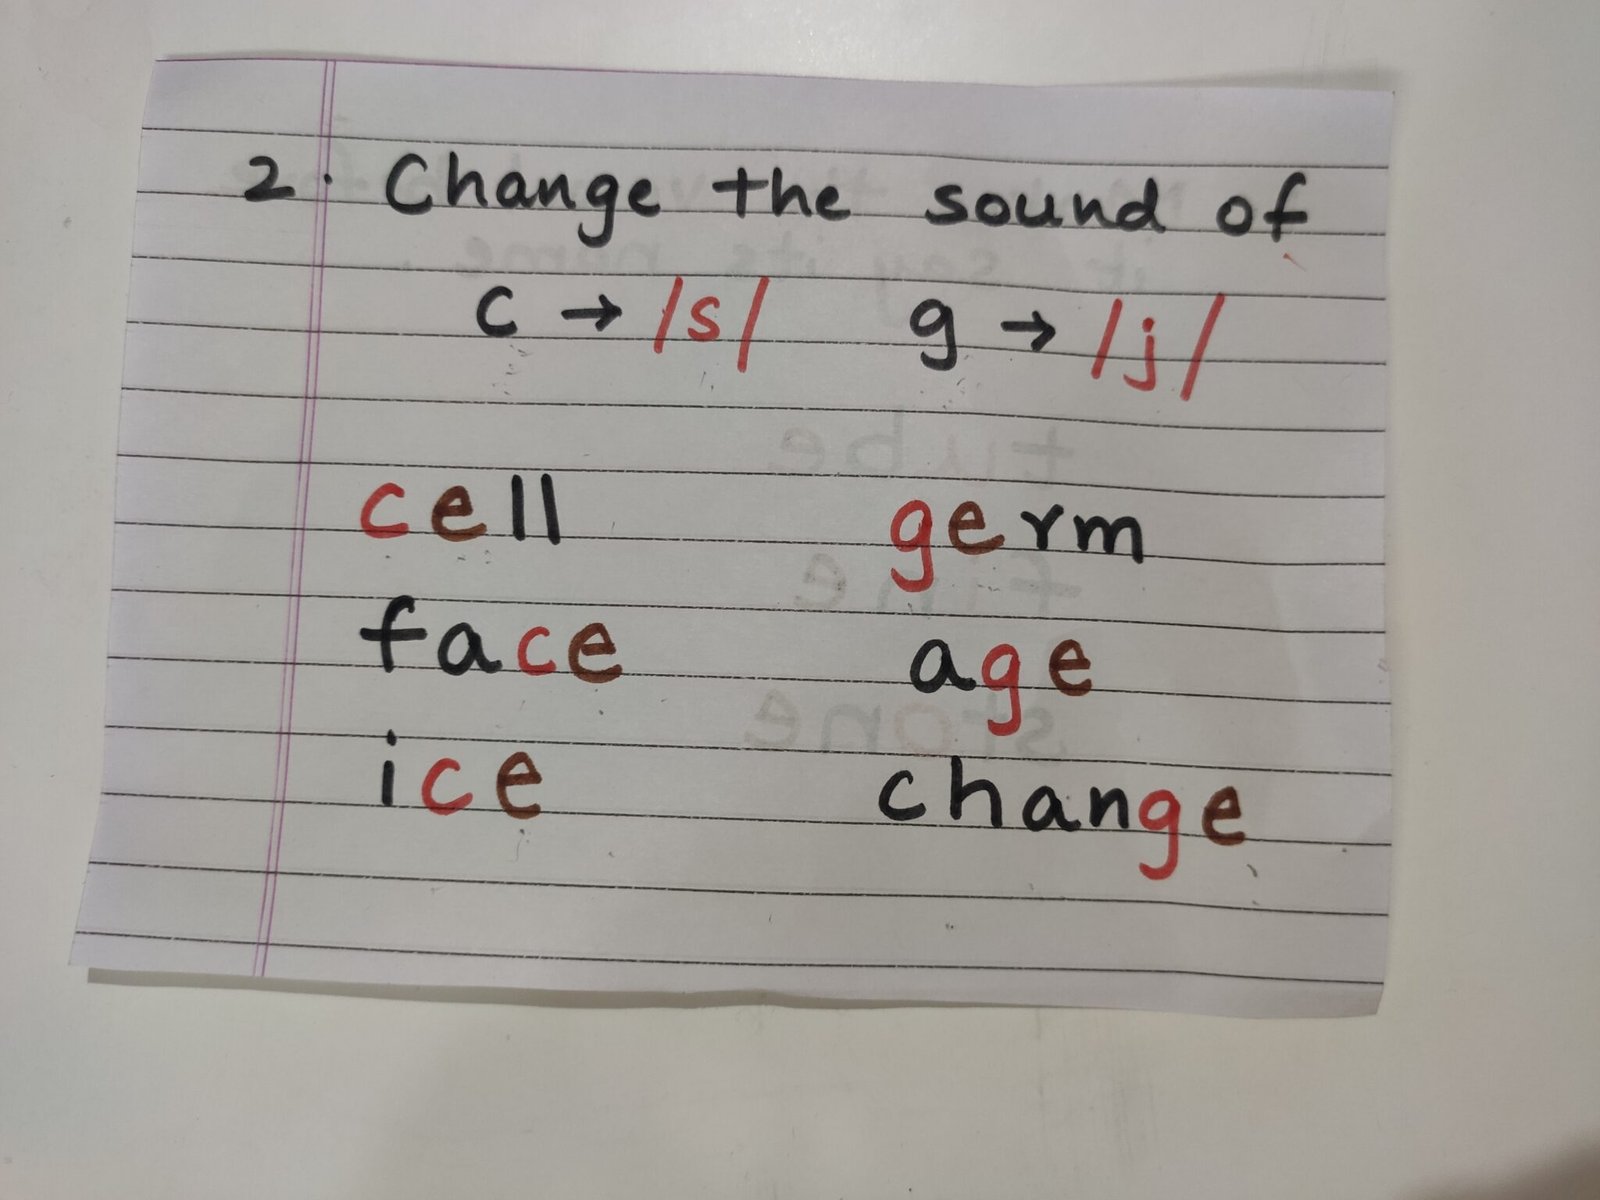 2. Change the sound of
c → /s/ g → /j/
cell germ
face age
ice change